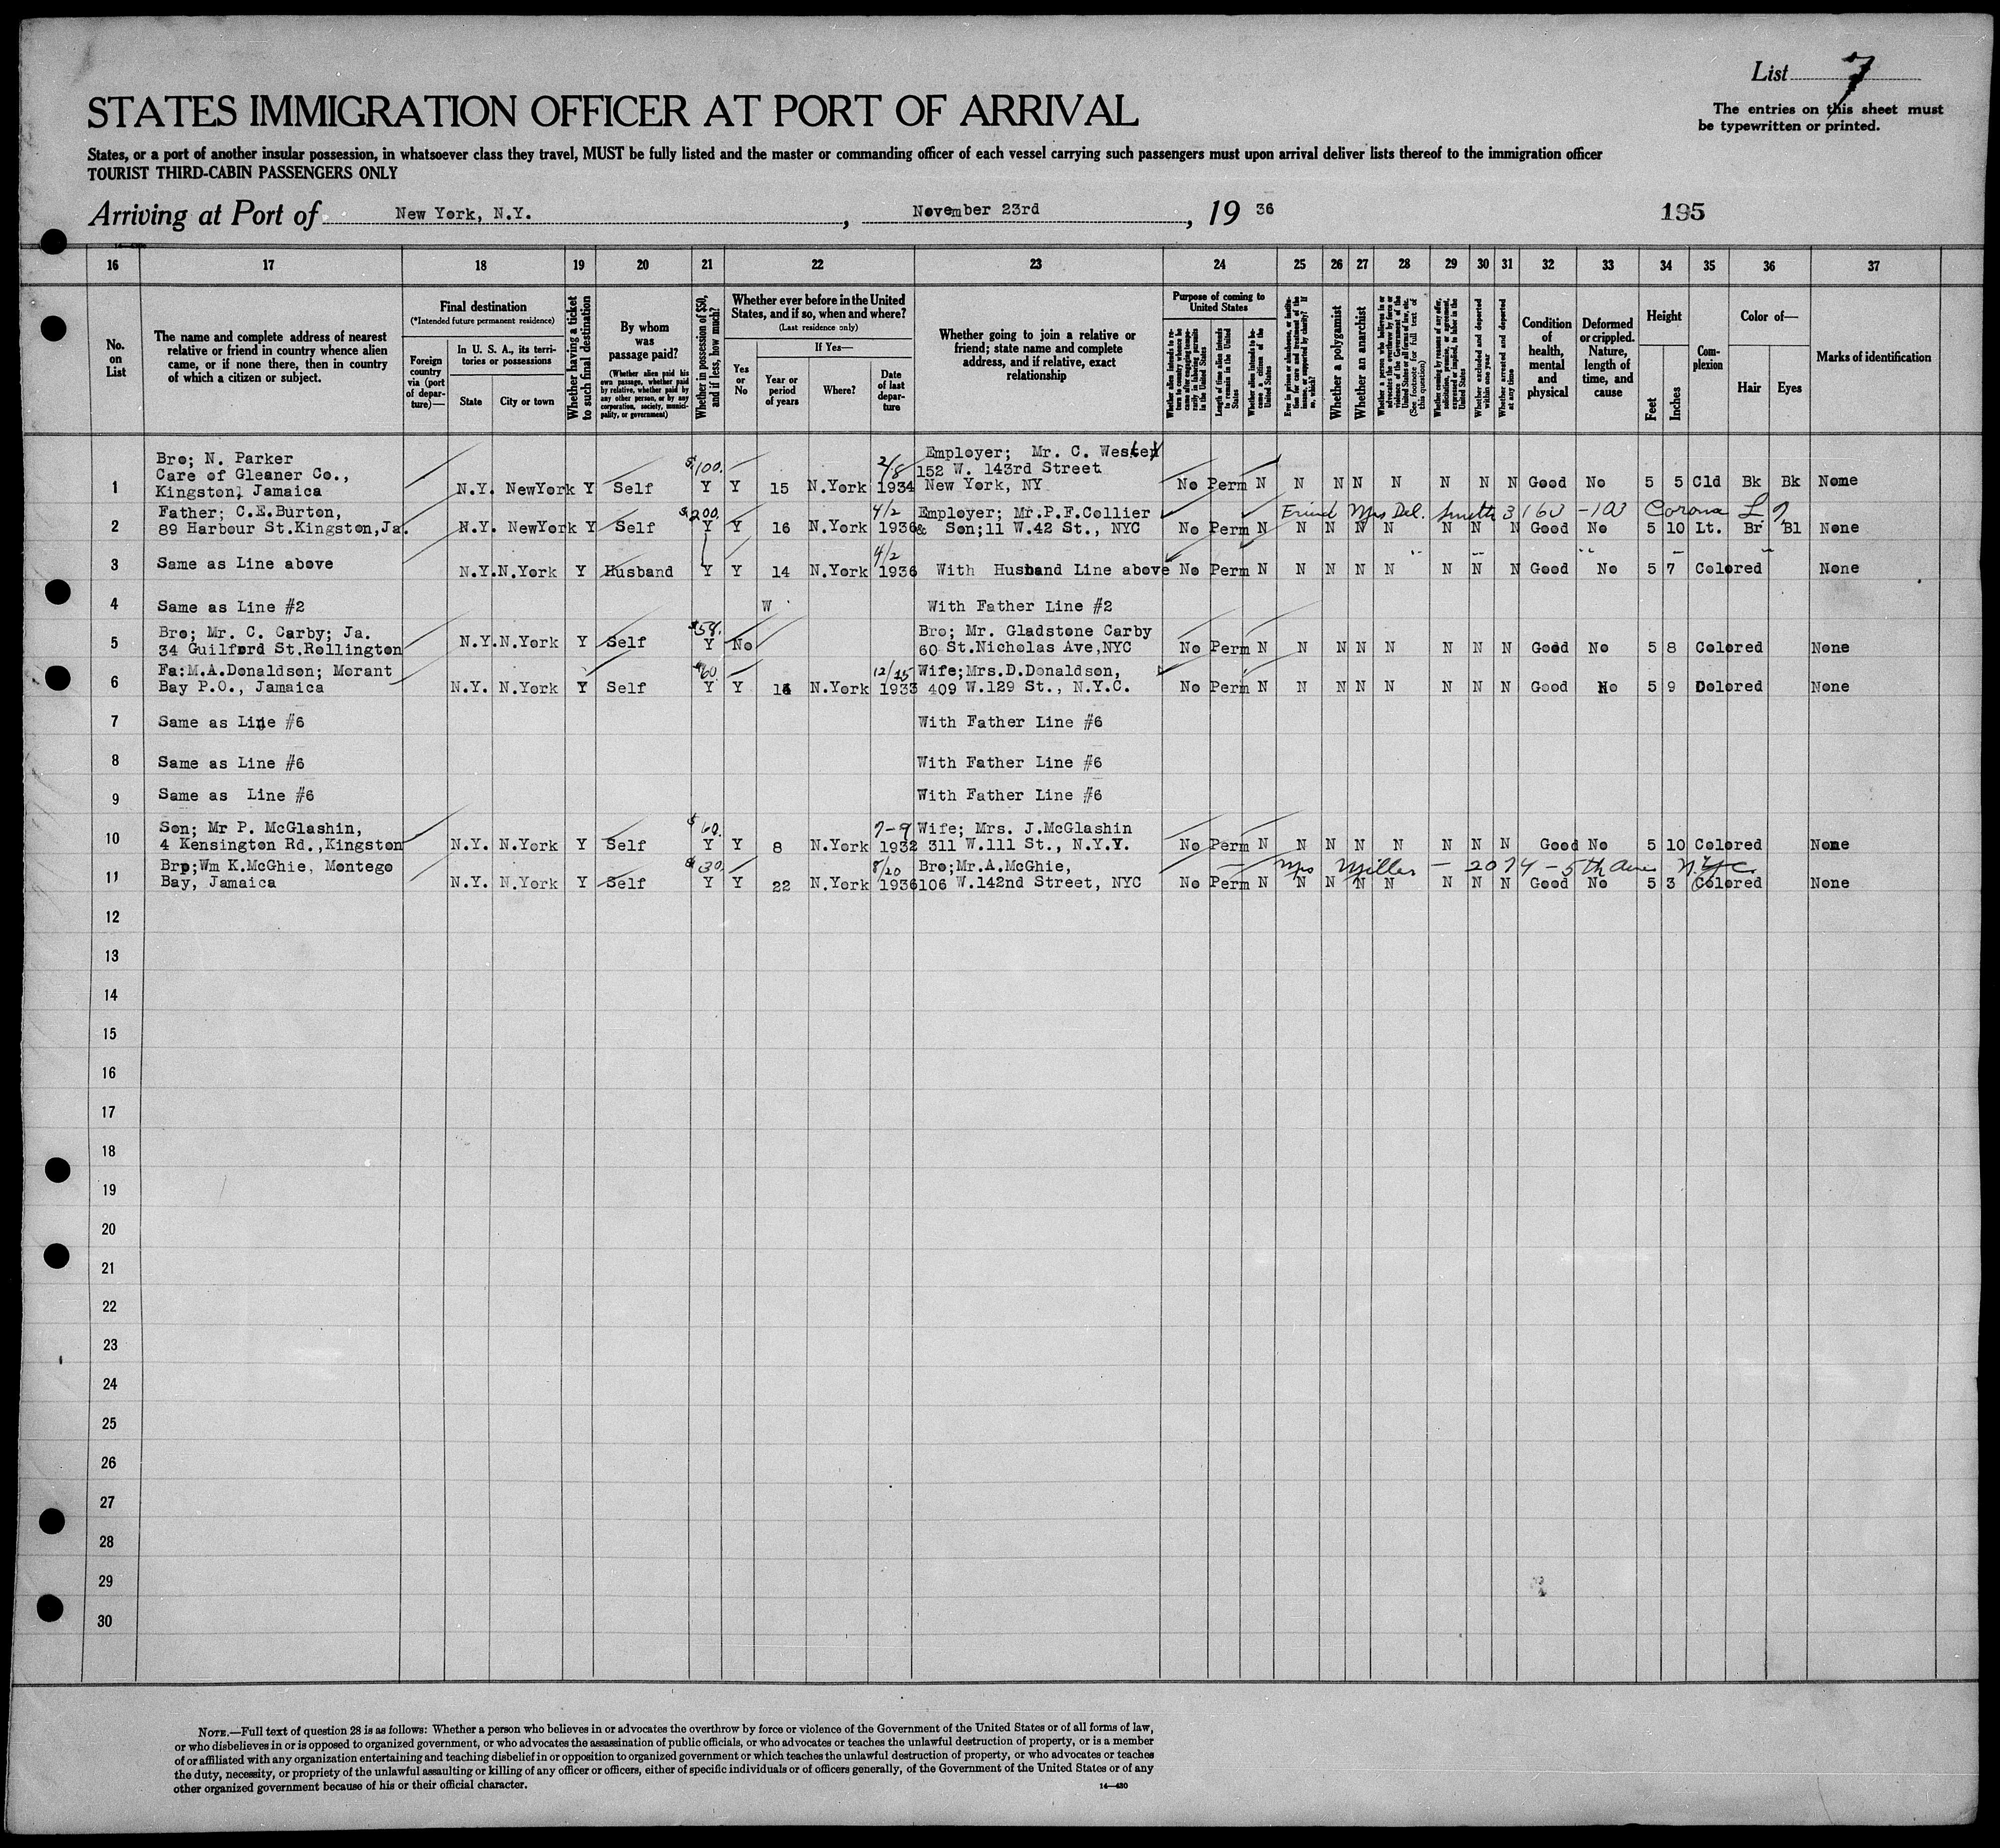 List 7
The entries on this sheet must
be typewritten or printed.
STATES IMMIGRATION OFFICER AT PORT OF ARRIVAL
States, or a port of another insular possession, in whatsoever class they travel, MUST be fully listed and the master or commanding officer of each vessel carrying such passengers must upon arrival deliver lists thereof to the immigration officer
TOURIST THIRD-CABIN PASSENGERS ONLY
Arriving at Port of New York, N.Y. , November 23rd , 19 36 195
16 17 18 19 20 21 22 23 24 25 26 27 28 29 30 31 32 33 34 35 36 37
No. on List
The name and complete address of nearest
relative or friend in country whence alien
came, or if none there, then in country
of which a citizen or subject.
Final destination
(*Intended future permanent residence)
Foreign country via (port of departure)—
In U. S. A., its territories or possessions
State City or town
Whether having a ticket to such final destination
By whom was passage paid?
(Whether alien paid his own passage, whether paid by relative, whether paid by any other person, or by any corporation, society, municipality, or government)
Whether in possession of $50, and if less, how much?
Whether ever before in the United States, and if so, when and where?
(Last residence only)
Yes or No
If Yes—
Year or period of years
Where?
Date of last departure
Whether going to join a relative or
friend; state name and complete
address, and if relative, exact
relationship
Purpose of coming to United States
Whether alien intends to return to country whence he came after engaging temporarily in laboring pursuits in the United States
Length of time alien intends to remain in the United States
Whether alien intends to become a citizen of the United States
Ever in prison or almshouse, or institution for care and treatment of the insane, or supported by charity? If so, which?
Whether a polygamist
Whether an anarchist
Whether a person who believes in or advocates the overthrow by force or violence of the Government of the United States or all forms of law, etc. (See footnote for full text of this question)
Whether coming by reasons of any offer, solicitation, promise, or agreement, expressed or implied, to labor in the United States
Whether excluded and deported within one year
Whether arrested and deported at any time
Condition of health, mental and physical
Deformed or crippled. Nature, length of time, and cause
Height
Feet Inches
Complexion
Color of—
Hair Eyes
Marks of identification
Bro; N. Parker Employer; Mr. C. Wester
Care of Gleaner Co., $100. 2/8 152 W. 143rd Street
1 Kingston, Jamaica N.Y. NewYork Y Self Y Y 15 N.York 1934 New York, NY No Perm N N N N N N N N Good No 5 5 Cld Bk Bk None
Father; C.E.Burton, $200. 4/2 Employer; Mr.P.F.Collier Friend Mrs Del. Smith 3160 -103 Corona L.I
2 89 Harbour St.Kingston,Ja. N.Y. NewYork Y Self Y Y 16 N.York 1936 & Son;11 W.42 St., NYC No Perm N N N N N N N N Good No 5 10 Lt. Br Bl None
4/2
3 Same as Line above N.Y. N.York Y Husband Y Y 14 N.York 1936 With Husband Line above No Perm N N N N N N N N Good No 5 7 Colored None
4 Same as Line #2 W With Father Line #2
Bro; Mr. C. Carby; Ja. $58. Bro; Mr. Gladstone Carby
5 34 Guilford St.Rollington N.Y. N.York Y Self Y No 60 St.Nicholas Ave,NYC No Perm N N N N N N N N Good No 5 8 Colored None
Fa:M.A.Donaldson; Morant $60 12/15 Wife;Mrs.D.Donaldson,
6 Bay P.O., Jamaica N.Y. N.York Y Self Y Y N.York 1933 409 W.129 St., N.Y.C. No Perm N N N N N N N N Good No 5 9 Colored None
7 Same as Line #6 With Father Line #6
8 Same as Line #6 With Father Line #6
9 Same as Line #6 With Father Line #6
Son; Mr P. McGlashin, $60. 7-9 Wife; Mrs. J.McGlashin
10 4 Kensington Rd.,Kingston N.Y. N.York Y Self Y Y 8 N.York 1932 311 W.111 St., N.Y.Y. No Perm N N N N N N N N Good No 5 10 Colored None
Bro;Wm K.McGhie, Montego $30. 8/20 Bro;Mr.A.McGhie, — Mrs Miller — 2074 - 5th Ave N.Y.C.
11 Bay, Jamaica N.Y. N.York Y Self Y Y 22 N.York 1936 106 W.142nd Street, NYC No Perm N N N N N N N N Good No 5 3 Colored None
12
13
14
15
16
17
18
19
20
21
22
23
24
25
26
27
28
29
30
NOTE.—Full text of question 28 is as follows: Whether a person who believes in or advocates the overthrow by force or violence of the Government of the United States or of all forms of law,
or who disbelieves in or is opposed to organized government, or who advocates the assassination of public officials, or who advocates or teaches the unlawful destruction of property, or is a member
of or affiliated with any organization entertaining and teaching disbelief in or opposition to organized government or which teaches the unlawful destruction of property, or who advocates or teaches
the duty, necessity, or propriety of the unlawful assaulting or killing of any officer or officers, either of specific individuals or of officers generally, of the Government of the United States or of any
other organized government because of his or their official character.
14—430